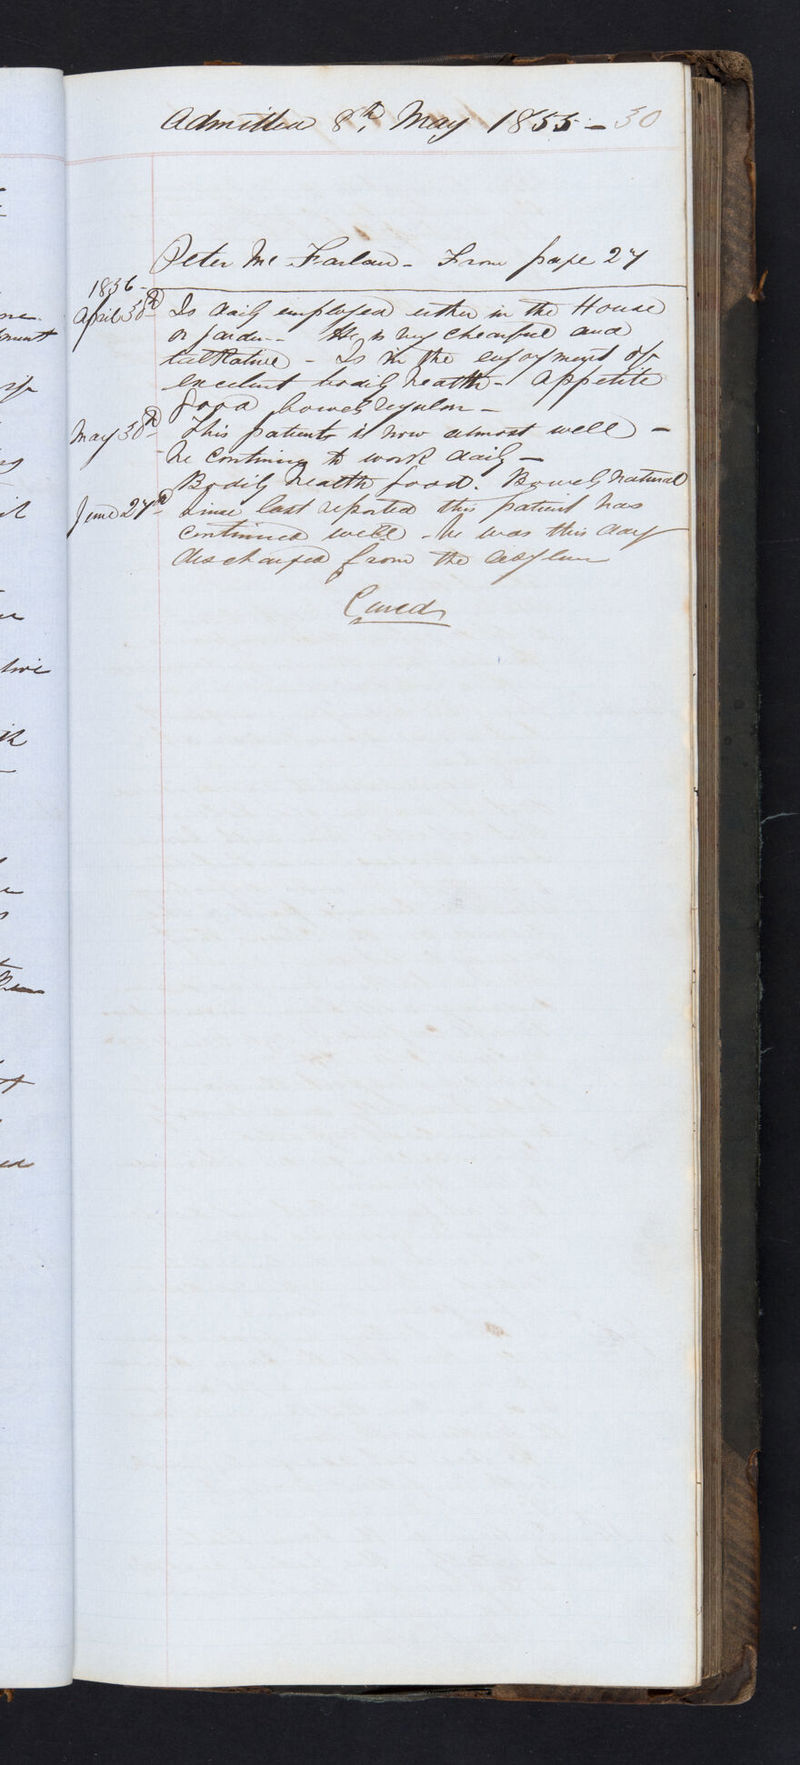 Admitted 8th May 1855 - 30
Peter Mc Farlan - From page 27
1856 -
April 30th Is daily employed either in the House
or garden - He is very chearful and
talkative - Is in the enjoyment of
excelent bodily health - Appetite
good bowels regular -
May 30th This patient is now almost well -
he continues to work daily -
Bodily health good. Bowels natural
June 27th Since last reported this patient has
continued well - he was this day
discharged from the asylum
Cured